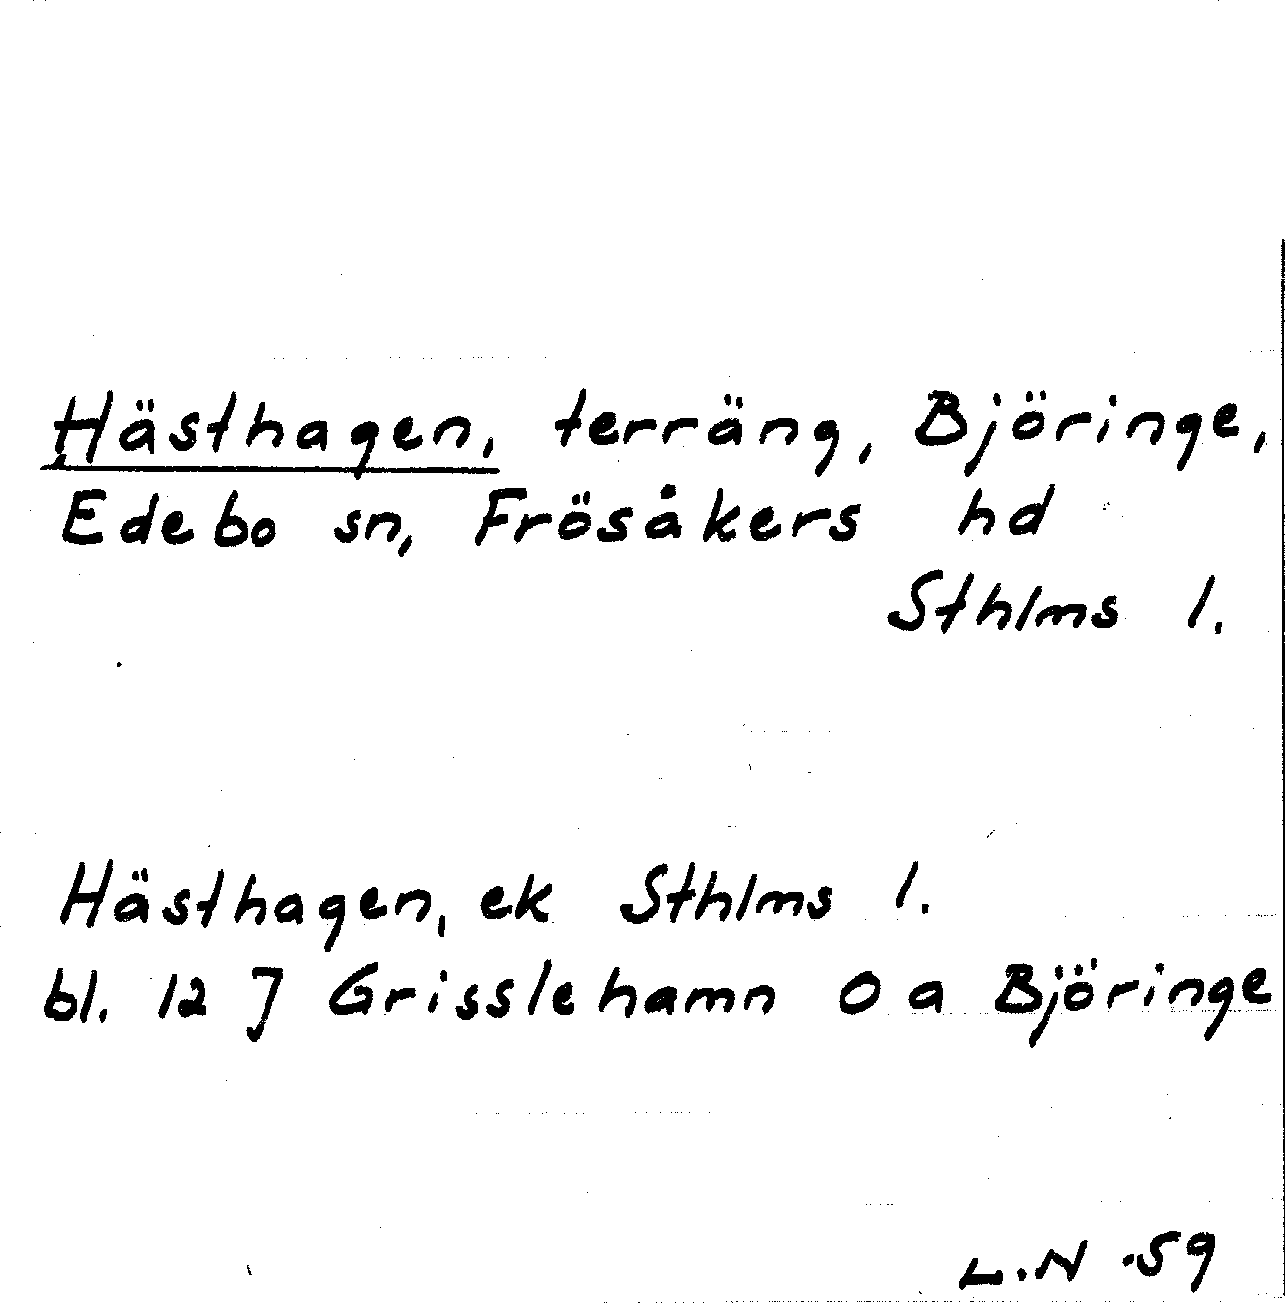 Hästhagen, terräng, Björinge,
Edebo sn, Frösåkers hd
Sthlms l.
Hästhagen, ek Sthlms l.
bl. 12 J Grisslehamn O a Björinge
L.N -59